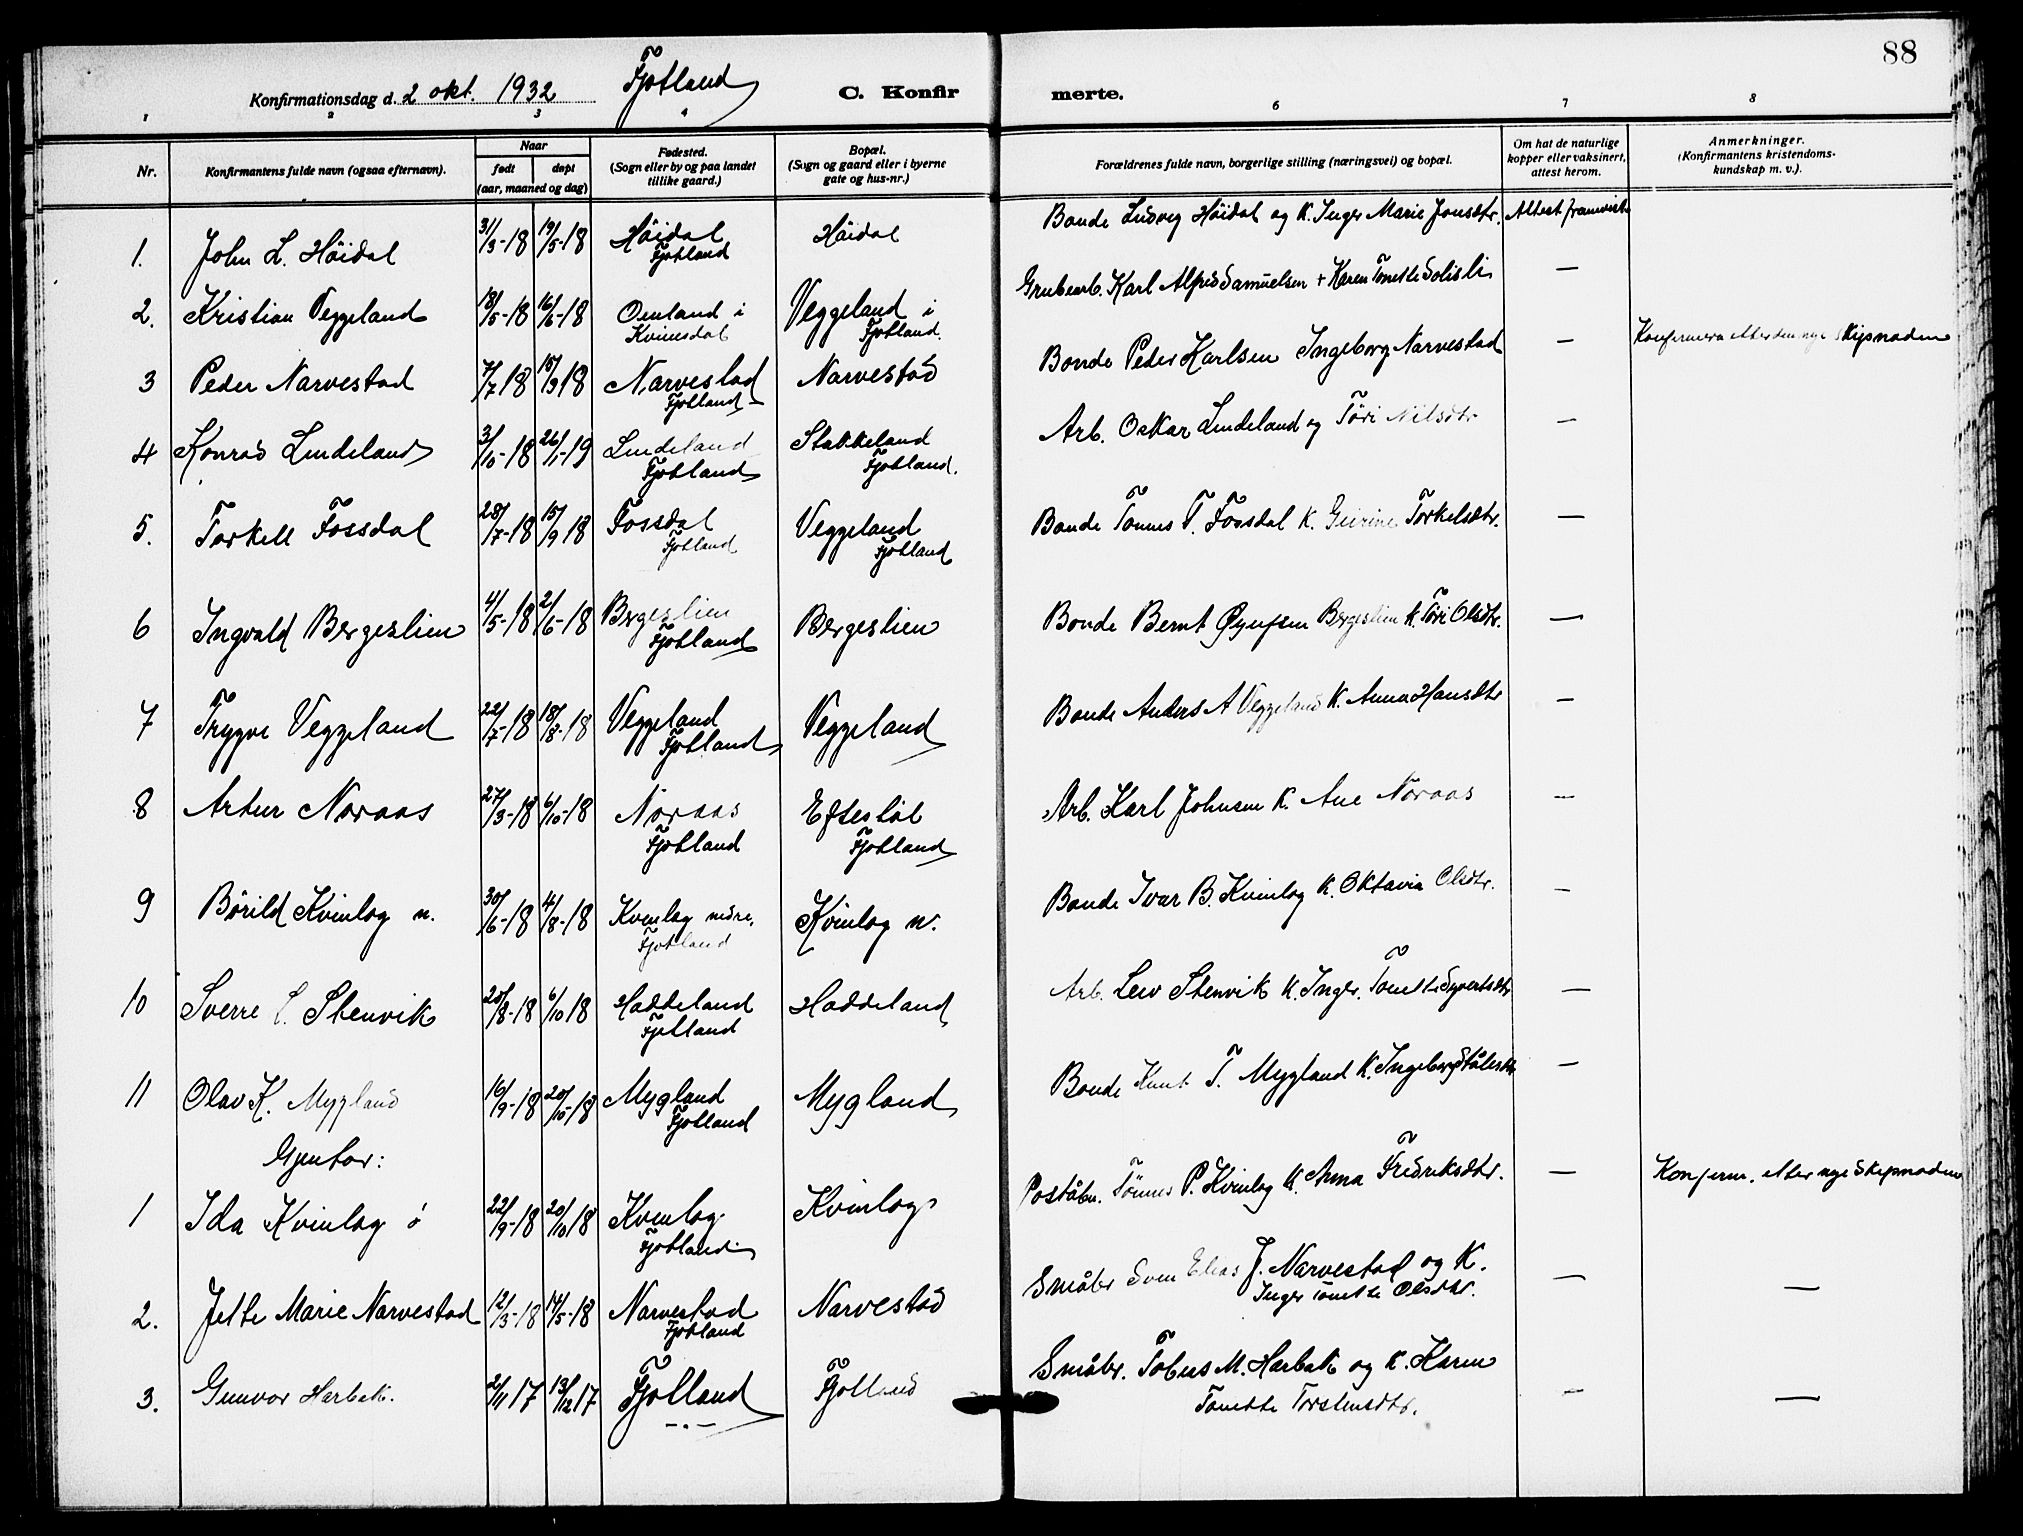 88
Konfirmationsdag d. 2 okt. 1932 Fjotland C. Konfirmerte.
1 2 3 4 6 7 8
Nr. Konfirmantens fulde navn (ogsaa efternavn). Naar født døpt (aar, maaned og dag) Fødested. (Sogn eller by og paa landet tillike gaard.) Bopæl. (Sogn og gaard eller i byerne gate og hus-nr.) Forældrenes fulde navn, borgerlige stilling (næringsvei) og bopæl. Om hat de naturlige kopper eller vaksinert, attest herom. Anmerkninger. (Konfirmantens kristendoms-kundskap m. v.).
1. John L. Höidal 31/3-18 19/5-18 Höidal Fjotland Höidal Bonde Ludvig Höidal og K. Inger Marie Jonsdtr. Attest framvist
2. Kristian Veggeland 18/5-18 16/6-18 Omland i Kvinesdal Veggeland i Fjotland. Grubearb. Karl Alfred Samuelsen + Karen Tonette Solisli —
3 Peder Narvestad 7/7 18 15/9 18 Narvestad Fjotland Narvestad Bonde Peder Karlsen Ingeborg Narvestad — Konfirmera etter den nye skipnaden
4 Konrad Lindeland 3/10-18 26/1-19 Lindeland Fjotland Stakkeland Fjotland. Arb. Oskar Lindeland og Töri Nilsdtr —
5. Torkell Fossdal 28/7-18 15/9 18 Fossdal Fjotland Veggeland Fjotland Bonde Tönnes T. Fossdal K. Geirine Torkelsdtr. —
6 Ingvald Bergeslien 4/5-18 2/6-18 Bergeslien Fjotland Bergeslien Bonde Bernt Øyufsen Bergeslien K. Töri Olsdtr. —
7 Trygve Veggeland 22/7-18 18/8-18 Veggeland Fjotland Veggeland Bonde Anders A Veggeland K. Anna Hansdtr —
8 Artur Noraas 27/3-18 6/10-18 Noraas Fjotland Eftestöl Fjotland Arb. Karl Johnsen K. Ane Noraas —
9 Börild Kvinlog n. 30/6-18 4/8-18 Kvinlog nedre. Fjotland Kvinlog n. Bonde Ivar B. Kvinlog K. Oktavia Olsdtr. —
10 Sverre L. Stenvik 25/8-18 6/10 18 Haddeland Fjotland Haddeland Arb. Leiv Stenvik K. Inger. Tonette Syvertsdtr —
11 Olav K. Mygland 16/9-18 20/10-18 Mygland Fjotland Mygland Bonde Knut T. Mygland K. Ingeborg Ståletdtr —
Gjentor:
1 Ida Kvinlog ö 22/9-18 20/10 18 Kvinlog. Fjotland. Kvinlog Poståbn. Tönnes P. Kvinlog K. Anna Fredriksdtr. — Konfirm. etter nye skipnaden
2. Jette Marie Narvestad 12/3-18 14/5-18 Narvestad Fjotland Narvestad Småbr Sven Elias J. Narvestad og K. Inger Tonette Olsdtr. — —
3. Gunvor Harbak. 2/11 17 13/12 17 Fjotland -.- Fjotland Småbr. Tobias M. Harbak og K. Karen Tonette Torstensdtr. — —